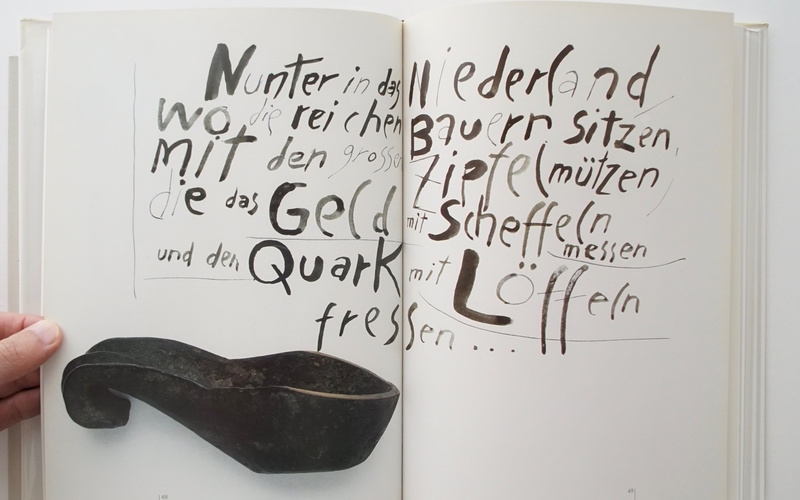 Nunter in das Niederland
wo die reichen Bauern sitzen,
mit den grossen Zipfelmützen
die das Geld mit Scheffeln messen
und den Quark mit Löffeln
fressen ...